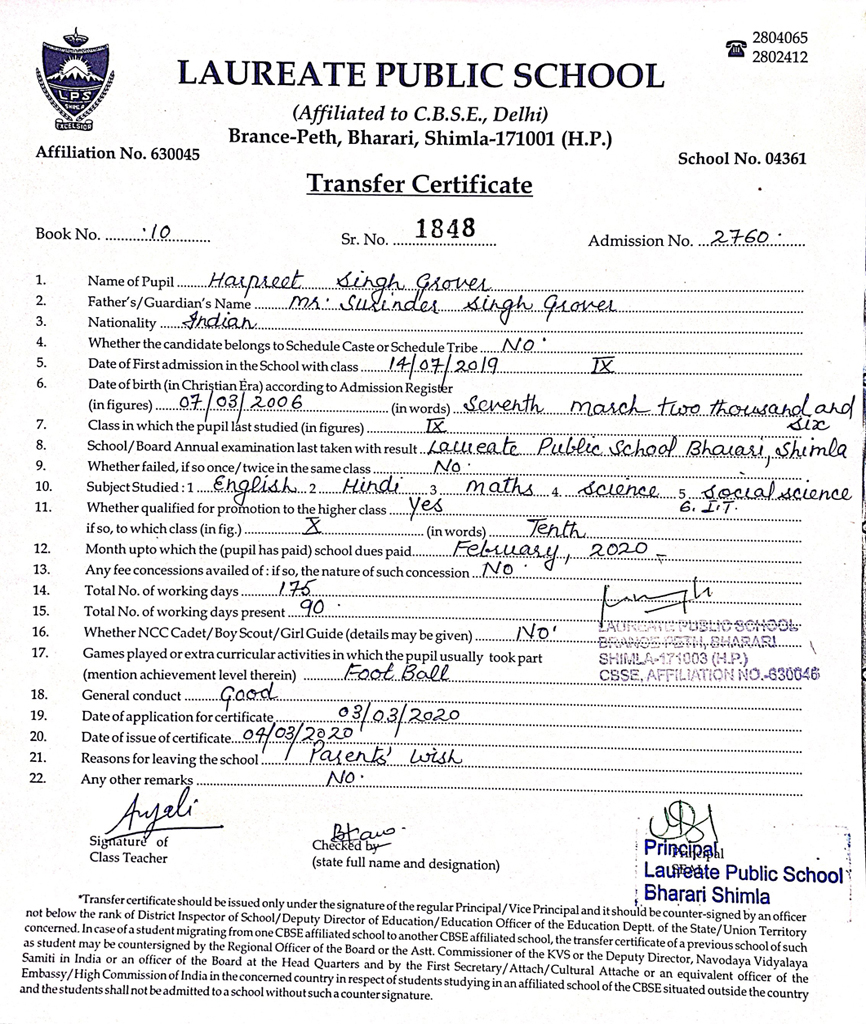 2804065
2802412
LPS
SHIMLA
EXCELSIOR
LAUREATE PUBLIC SCHOOL
(Affiliated to C.B.S.E., Delhi)
Brance-Peth, Bharari, Shimla-171001 (H.P.)
Affiliation No. 630045
School No. 04361
Transfer Certificate
Book No. 10 Sr. No. 1848 Admission No. 2760
1. Name of Pupil Harpreet Singh Grover
2. Father's/Guardian's Name Mr. Surinder Singh Grover
3. Nationality Indian
4. Whether the candidate belongs to Schedule Caste or Schedule Tribe NO
5. Date of First admission in the School with class 14/07/2019 IX
6. Date of birth (in Christian Era) according to Admission Register
(in figures) 07/03/2006 (in words) Seventh March two thousand and
six
7. Class in which the pupil last studied (in figures) IX
8. School/Board Annual examination last taken with result Laureate Public School Bharari, Shimla
9. Whether failed, if so once/twice in the same class No.
10. Subject Studied : 1 English 2 Hindi 3 maths 4 science 5 social science
6. I.T.
11. Whether qualified for promotion to the higher class Yes
if so, to which class (in fig.) X (in words) Tenth
12. Month upto which the (pupil has paid) school dues paid February, 2020
13. Any fee concessions availed of : if so, the nature of such concession NO
14. Total No. of working days 175
15. Total No. of working days present 90
16. Whether NCC Cadet/Boy Scout/Girl Guide (details may be given) NO
LAUREATE PUBLIC SCHOOL
BRANCE PETH, BHARARI
SHIMLA-171003 (H.P.)
CBSE, AFFILIATION NO.-630045
17. Games played or extra curricular activities in which the pupil usually took part
(mention achievement level therein) Foot Ball
18. General conduct Good
19. Date of application for certificate 03/03/2020
20. Date of issue of certificate 04/03/2020
21. Reasons for leaving the school Parents' Wish
22. Any other remarks NO.
Anjali
Signature of
Class Teacher
Checked by
(state full name and designation)
Principal
Laureate Public School
Bharari Shimla
*Transfer certificate should be issued only under the signature of the regular Principal/Vice Principal and it should be counter-signed by an officer
not below the rank of District Inspector of School/Deputy Director of Education/Education Officer of the Education Deptt. of the State/Union Territory
concerned. In case of a student migrating from one CBSE affiliated school to another CBSE affiliated school, the transfer certificate of a previous school of such
as student may be countersigned by the Regional Officer of the Board or the Astt. Commissioner of the KVS or the Deputy Director, Navodaya Vidyalaya
Samiti in India or an officer of the Board at the Head Quarters and by the First Secretary/Attach/Cultural Attache or an equivalent officer of the
Embassy/High Commission of India in the concerned country in respect of students studying in an affiliated school of the CBSE situated outside the country
and the students shall not be admitted to a school without such a counter signature.